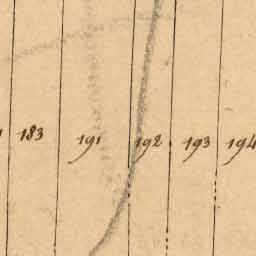 183 191 192 193 194